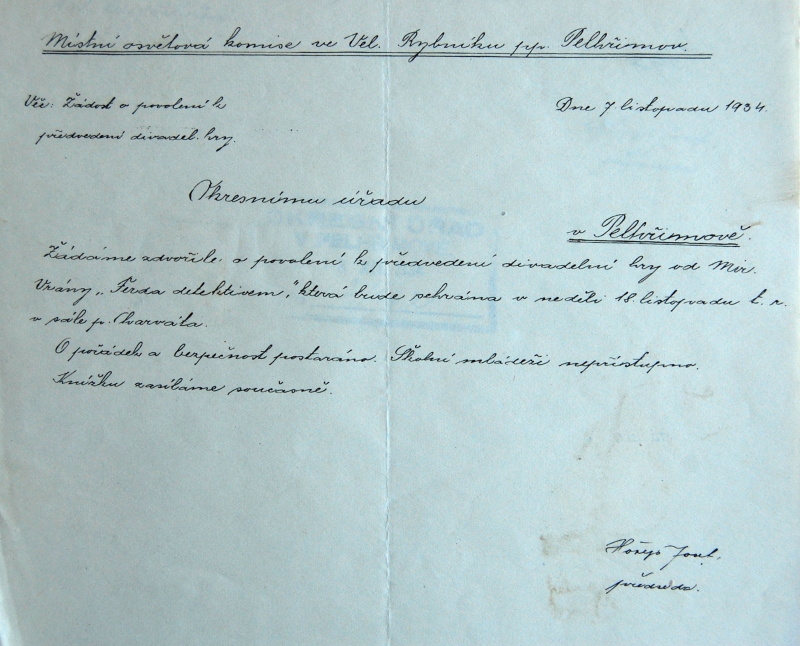 Místní osvětová komise ve Vel. Rybníku pp. Pelhřimov.
Věc: Žádost o povolení k
předvedení divadel. hry.
Dne 7 listopadu 1934.
Okresnímu úřadu
v Pelhřimově.
Žádáme zdvořile o povolení k předvedení divadelní hry od Mir.
Vrány „Ferda detektivem," která bude sehrána v neděli 18 listopadu t. r.
v sále p. Charváta.
O pořádek a bezpečnost postaráno. Školní mládeži nepřístupno.
Knížku zasíláme současně.
Josef.
předseda.